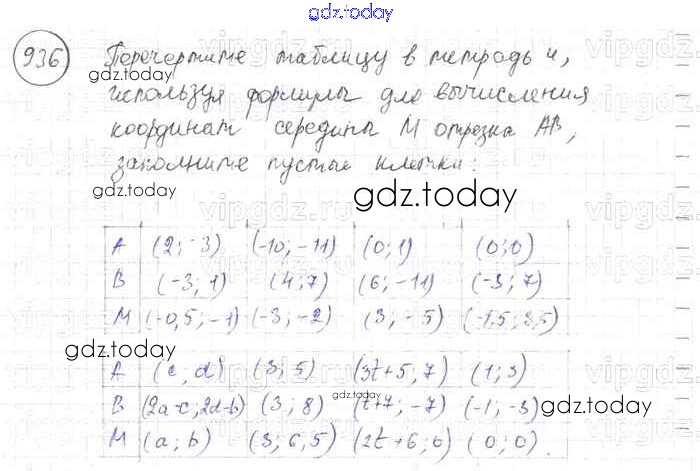 gdz.today
936 Перечертите таблицу в тетрадь и,
gdz.today
используя формулы для вычисления
координат середины M отрезка AB,
заполните пустые клетки:
gdz.today
A (2; -3) (-10; -11) (0; 1) (0; 0)
B (-3; 1) (4; 7) (6; -11) (-3; 7)
M (-0,5; -1) (-3; -2) (3; -5) (-1,5; 3,5)
gdz.today
A (c, d) (3; 5) (3t+5, 7) (1; 3)
B (2a-c; 2d-b) (3; 8) (t+7; -7) (-1; -3)
gdz.today
M (a; b) (3; 6,5) (2t+6; 0) (0; 0).
gdz.today